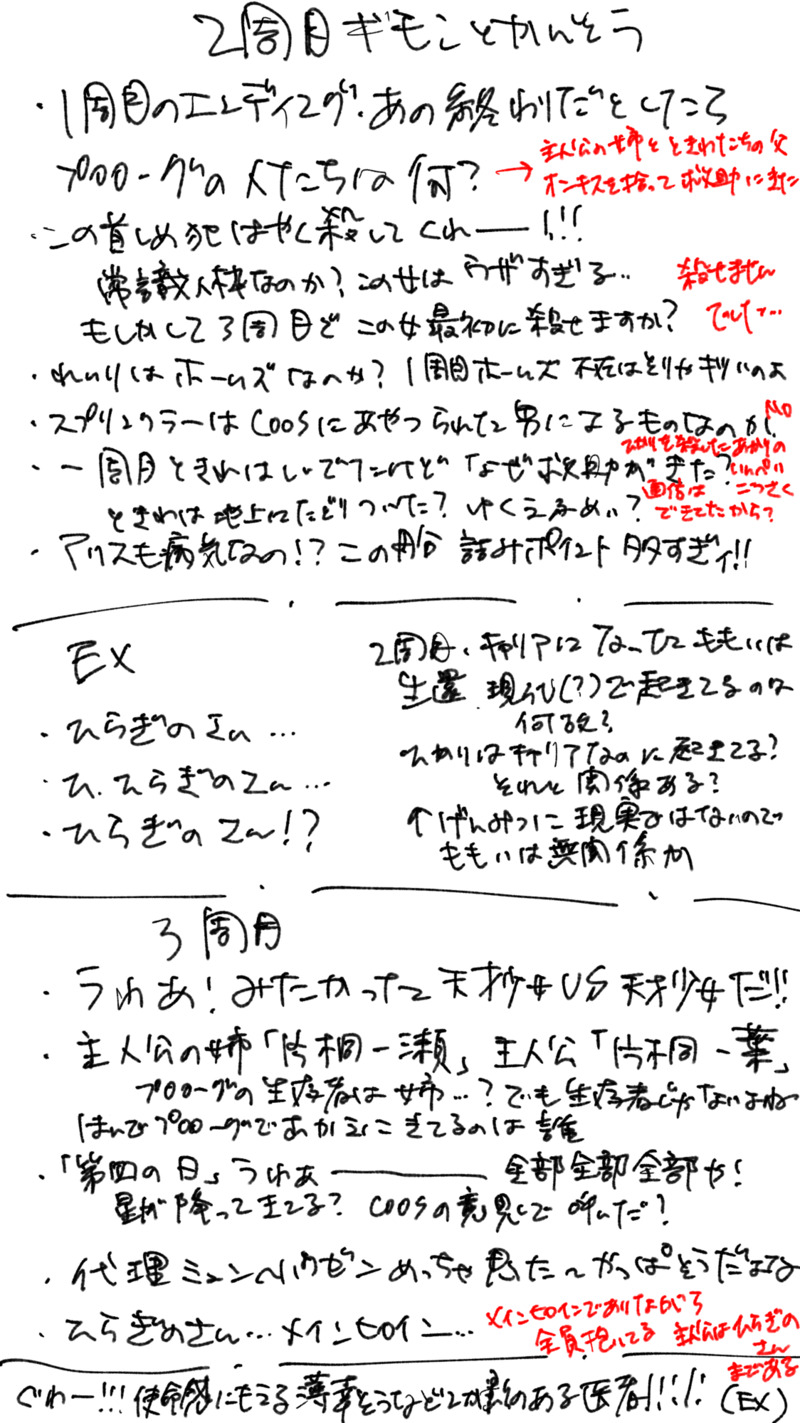 2周目ギモンとかんそう
・1周目のエンディング、あの終わりだとしたころ
プロローグの人たちは何?
→主人公の姉とときわたちの父
オンキスを拾って救助にきた
・この首しめ犯はやく殺してくれー!!!
常識人枠なのか?この女はウザすぎる..
殺せません
でした…
もしかして3周目でこの女最初に殺せますか?
・れいりはホームズなのか?1周目ホームズ不在はとりかギリいのよ
・スプリンクラーはCOOSにあやつられた男によるものなのか?
NO
・一周目ときわはしんでたけどなぜ救助がきた?
ひかりを殺したあかりの
いんぺい
こうさく
通信は
できてたから?
ときわは地上にたどりついた?ゆくえふめい?
・アリスも病気なの!?この船詰みポイント多すぎィ!!
EX
・ひらぎのさん…
・ひ、ひらぎのさん…
・ひらぎのさん!?
2周目、キャリアになったももいは
生還 現代(?)で起きてるのは
何故?
ひかりはキャリアなのに起きてる?
それと関係ある?
↑げんみつに現実ではないので
ももいは無関係か
3周目
・うわあ!みたかった天才少女VS天才少女だ!!
・主人公の姉「片桐一瀬」主人公「片桐一葉」
プロローグの生存者は姉…?でも生存者じゃないよね
ほんでプロローグであかえにきてるのは誰
・「第四の日」うわぁー全部全部全部か!
星が降って生てる?COOSの意思で呼んだ?
・代理ミュンヒハウゼンめっちゃ見た〜かっぱそうだよな
・ひらぎのさん…メインヒロイン…
メインヒロインでありながら
全員抱いてる 主人公はひらぎの
さん
まである
ぐわー!!!使命感にもえる薄幸そうなどこか影のある医者!!!!
(EX)